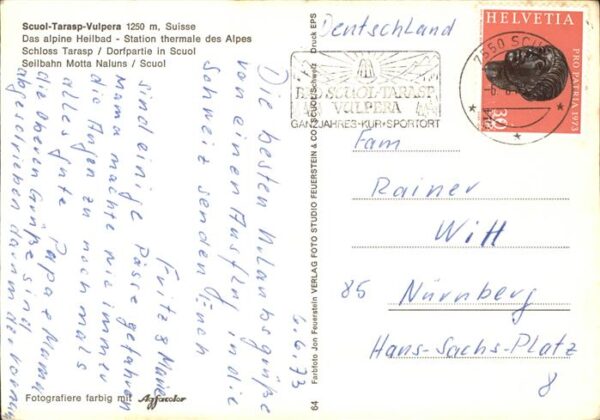 Scuol-Tarasp-Vulpera 1250 m, Suisse
Das alpine Heilbad - Station thermale des Alpes
Schloss Tarasp / Dorfpartie in Scuol
Seilbahn Motta Naluns / Scuol
4.6.73
Die besten Urlaubsgrüße
von einen Ausflug in die
Schweiz senden Euch
Fritz & Marie
sind einige Pässe gefahren
Mama machte wie immer
die Augen zu nochmals
alles gute
Papa & Mama
die oberen Grüße sind
abgeschrieben darum der
Fotografiere farbig mit Agfacolor
64 Farbfoto Jon Feuerstein VERLAG FOTO STUDIO FEUERSTEIN & CO, SCUOL/Schweiz Druck EPS
Deutschland
SCUOL-TARASP
VULPERA
GANZJAHRES-KUR+SPORTORT
7550 SCUOL
HELVETIA
PRO PATRIA 1973
30
Fam
Rainer
Witt
85 Nürnberg
Hans-Sachs-Platz
8